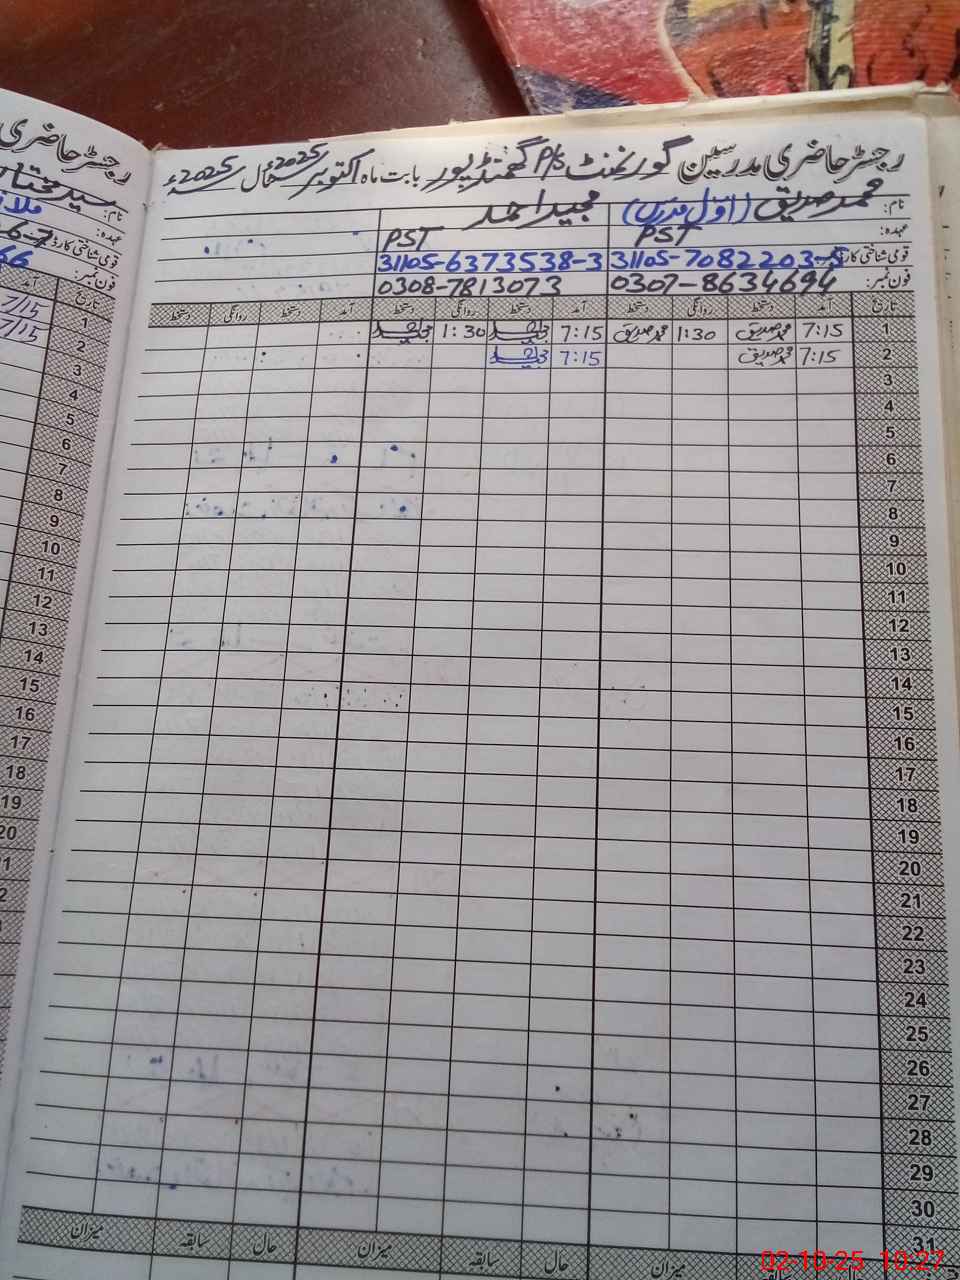 رجسٹر حاضری مدرسین گورنمنٹ P/S گھمنڈپور بابت ماہ اکتوبر 2025 سال 2025ء
نام: محمد صدیق (اول مدرس) مجید احمد
عہدہ: PST PST
قومی شناختی کارڈ 31105-7082203-5 31105-6373538-3
فون نمبر: 0307-8634694 0308-7813073
تاریخ آمد دستخط روانگی دستخط آمد دستخط روانگی دستخط آمد دستخط روانگی دستخط
1 7:15 محمد صدیق 1:30 محمد صدیق 7:15 مجید 1:30 مجید
2 7:15 محمد صدیق 7:15 مجید
3
4
5
6
7
8
9
10
11
12
13
14
15
16
17
18
19
20
21
22
23
24
25
26
27
28
29
30
31
میزان حال سابقہ میزان حال سابقہ میزان
رجسٹر حاضری
نام: سید مختار
عہدہ:
قومی شناختی کارڈ
فون نمبر:
تاریخ آمد
1 7/15
2 7/15
3
4
5
6
7
8
9
10
11
12
13
14
15
16
17
18
19
20
02-10-25 10:27